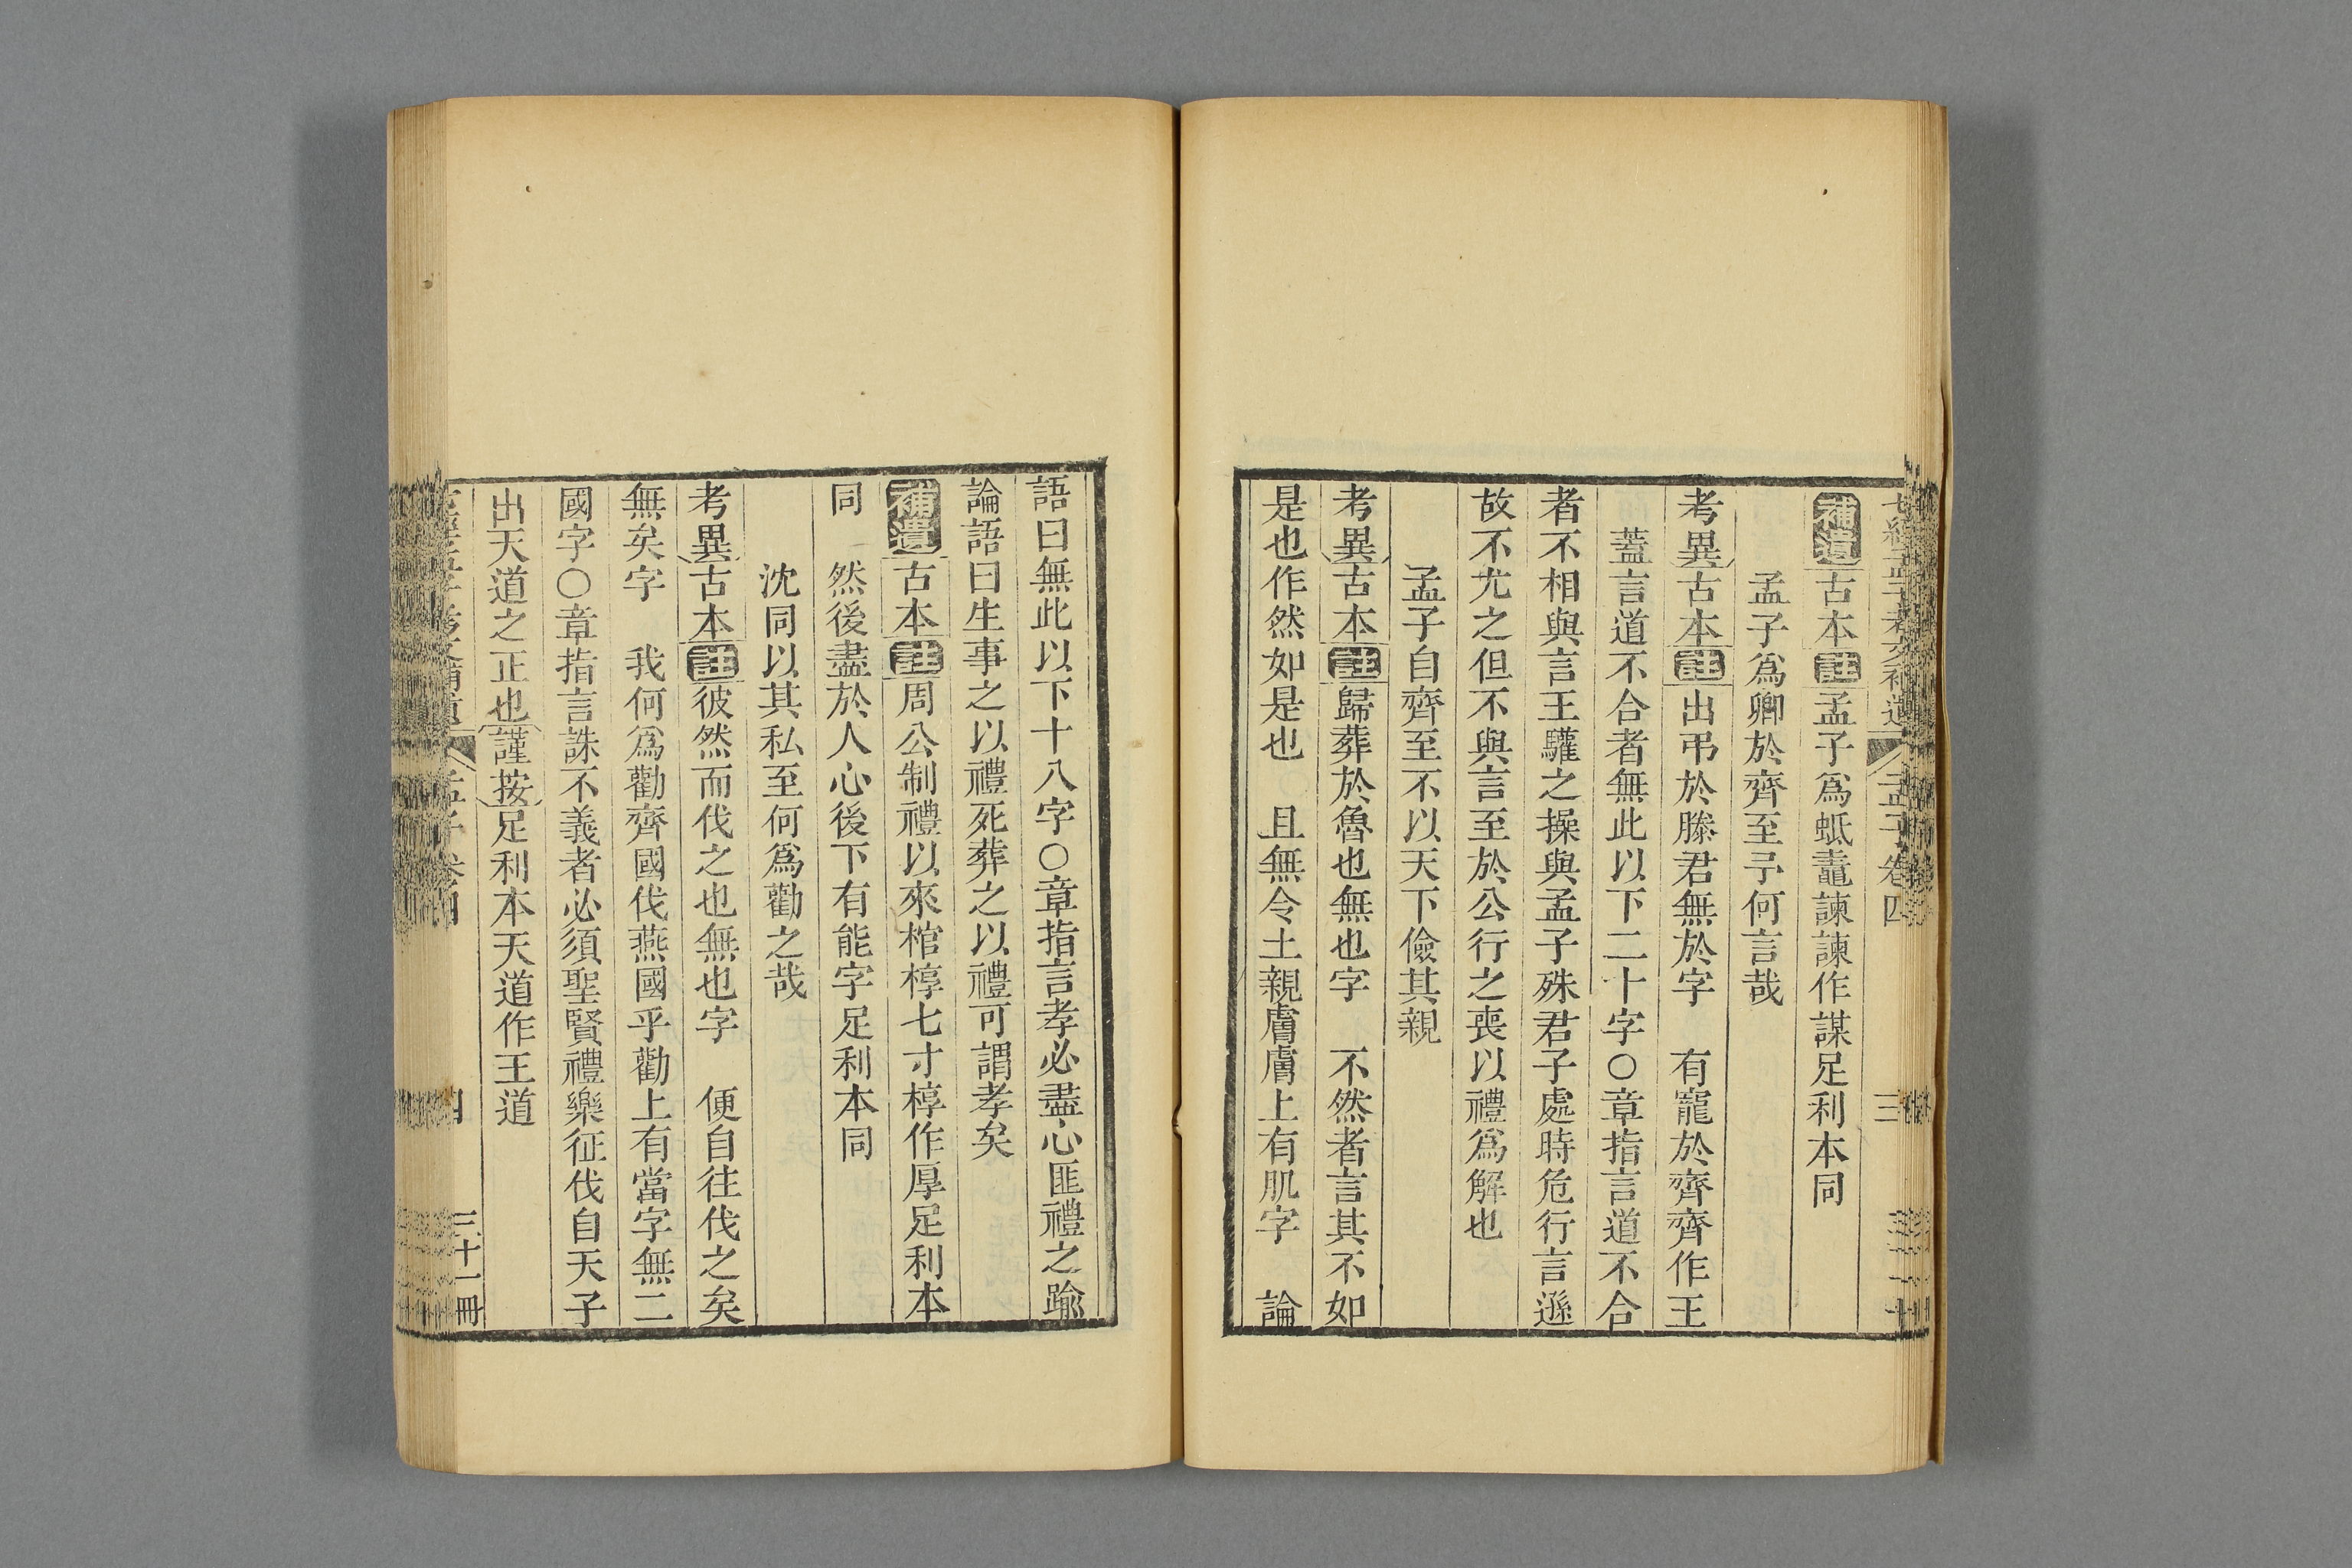 補遺古本註孟子爲蚳鼃諫諫作謀足利本同
孟子爲卿於齊至予何言哉
考異古本註出弔於滕君無於字　有寵於齊齊作王
蓋言道不合者無此以下二十字〇章指言道不合
者不相與言王驩之操與孟子殊君子處時危行言遜
故不尤之但不與言至於公行之喪以禮爲解也
孟子自齊至不以天下儉其親
考異古本註歸葬於魯也無也字　不然者言其不如
是也作然如是也　且無令土親膚膚上有肌字　論
語曰無此以下十八字〇章指言孝必盡心匪禮之踰
論語曰生事之以禮死葬之以禮可謂孝矣
補遺古本註周公制禮以來棺椁七寸椁作厚足利本
同　然後盡於人心後下有能字足利本同
沈同以其私至何爲勸之哉
考異古本註彼然而伐之也無也字　便自往伐之矣
無矣字　我何爲勸齊國伐燕國乎勸上有當字無二
國字〇章指言誅不義者必須聖賢禮樂征伐自天子
出天道之正也謹按足利本天道作王道
三十一冊